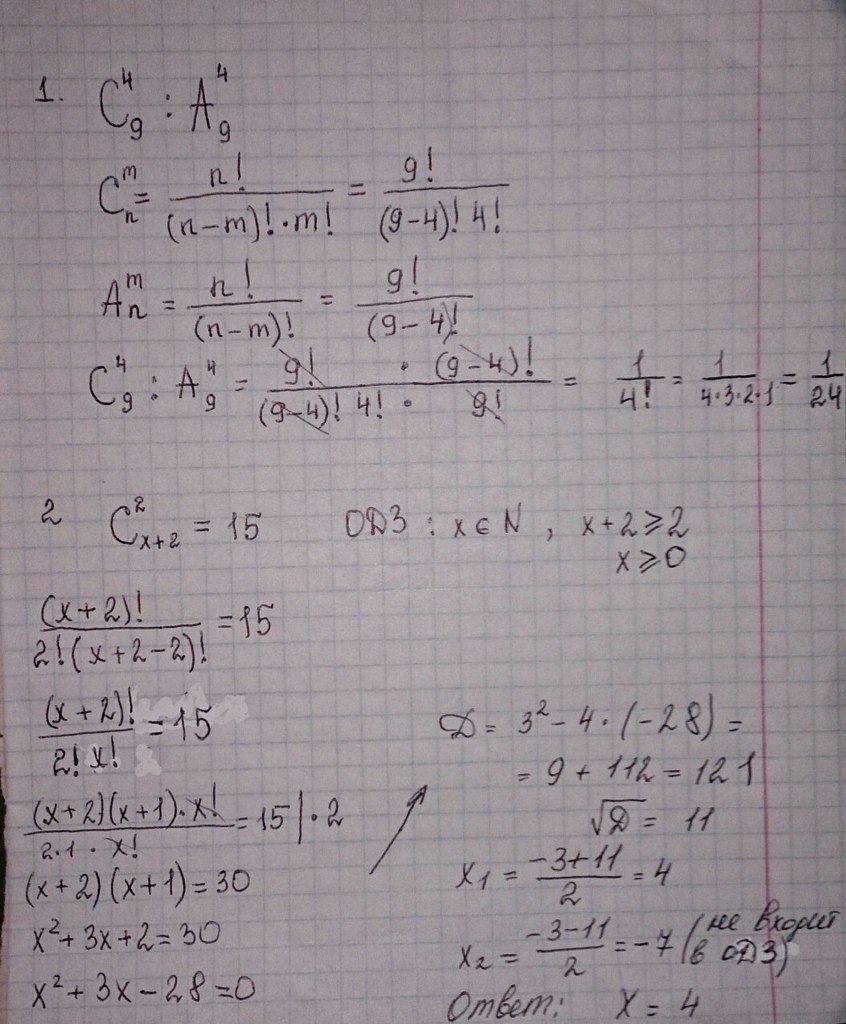 1. C₉⁴ : A₉⁴
Cₙᵐ = n! / (n-m)!·m! = 9! / (9-4)! 4!
Aₙᵐ = n! / (n-m)! = 9! / (9-4)!
C₉⁴ : A₉⁴ = 9! · (9-4)! / (9-4)! 4! · 9! = 1 / 4! = 1 / 4·3·2·1 = 1 / 24
2 C²ₓ₊₂ = 15 ОДЗ : x ∈ N , x+2 ⩾ 2
x ⩾ 0
(x+2)! / 2!(x+2-2)! = 15
(x+2)! / 2! x! = 15
(x+2)(x+1)·x! / 2·1·x! = 15 |·2
(x+2)(x+1) = 30
x² + 3x + 2 = 30
x² + 3x - 28 = 0
D = 3² - 4·(-28) =
= 9 + 112 = 121
√D = 11
x₁ = -3+11 / 2 = 4
x₂ = -3-11 / 2 = -7 (не входит
в ОДЗ)
Ответ: x = 4